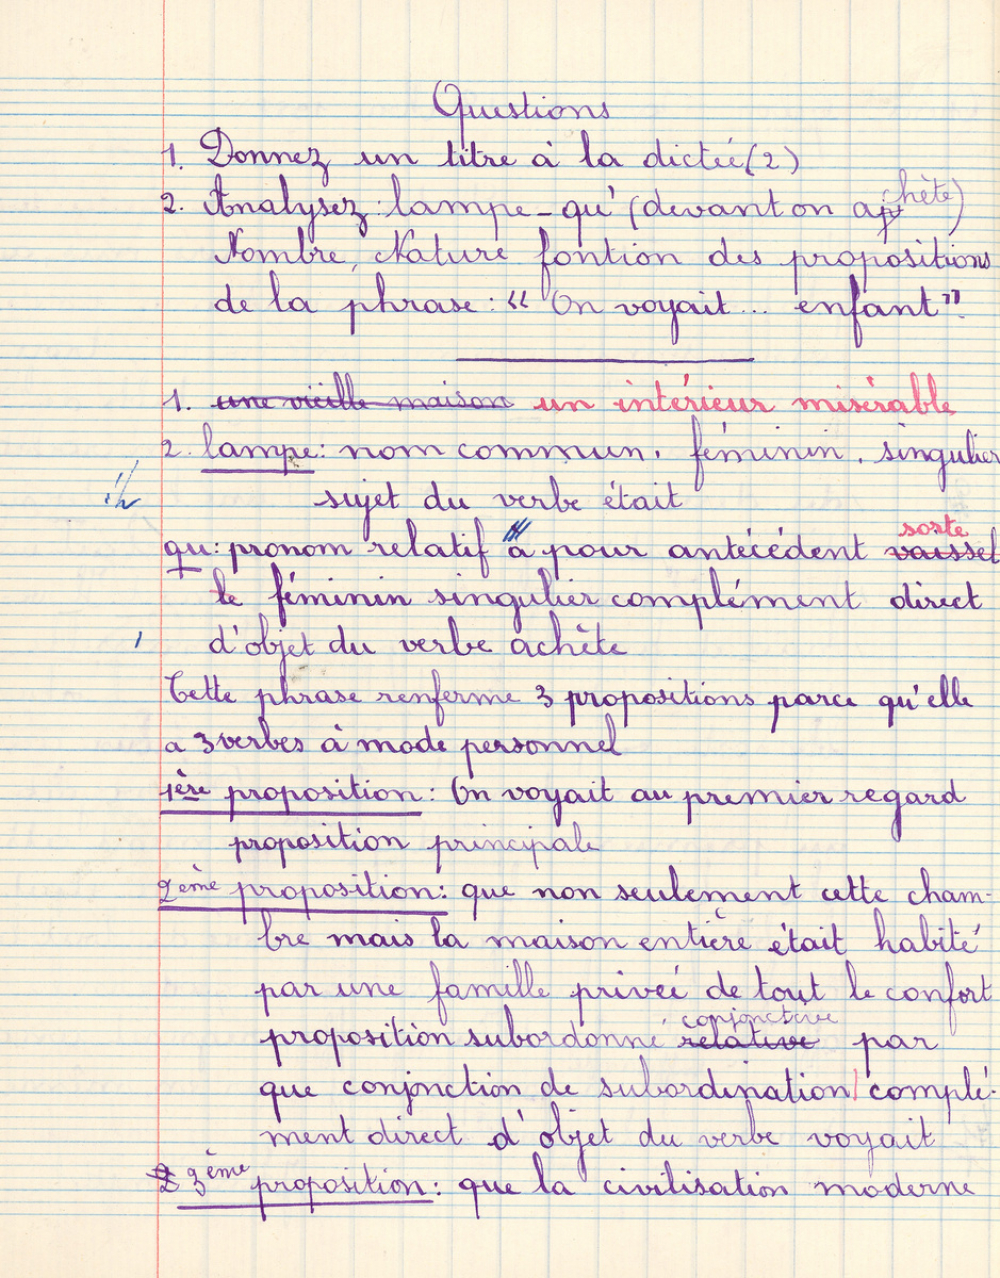 Questions
1. Donnez un titre à la dictée (2)
2. Analysez : lampe - qu' (devant on achète)
Nombre, Nature fontion des propositions
de la phrase : " On voyait ... enfant".
1. une vieille maison un intérieur misérable
2. lampe : nom commun, féminin, singulier
sujet du verbe était
qu : pronom relatif a pour antécédent vaissel sorte
le féminin singulier complément direct
d'objet du verbe achète
Cette phrase renferme 3 propositions parce qu'elle
a 3 verbes à mode personnel
1ère proposition : On voyait au premier regard
proposition principale
2ème proposition : que non seulement cette cham-
bre mais la maison entière était habité
par une famille privée de tout le confort
proposition subordonné relative conjonctive par
que conjonction de subordination complé-
ment direct d'objet du verbe voyait
3ème proposition : que la civilisation moderne